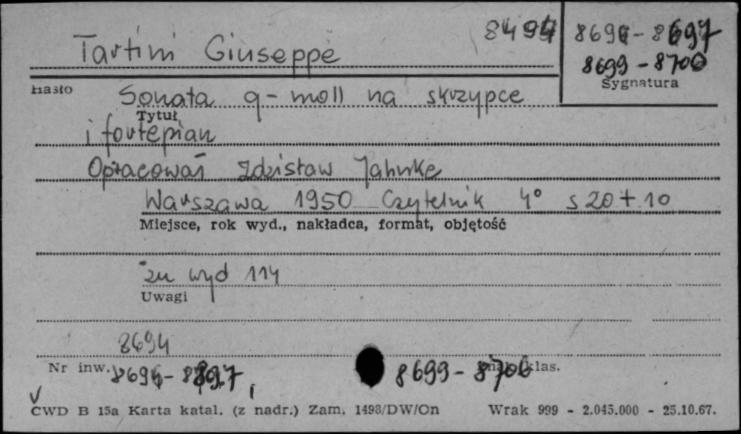 Tartini Giuseppe 8494 8696-8697
8699-8700
Hasło Sygnatura
Sonata g-moll na skrzypce
Tytuł
i fortepian
Opracował Zdzisław Jahnke
Warszawa 1950 Czytelnik 4° s 20+10
Miejsce, rok wyd., nakładca, format, objętość
zn wyd 114
Uwagi
8694
Nr inw. 8696-8697, 8699-8700 klas.
CWD B 15a Karta katal. (z nadr.) Zam. 1493/DW/On Wrak 999 - 2.045.000 - 25.10.67.